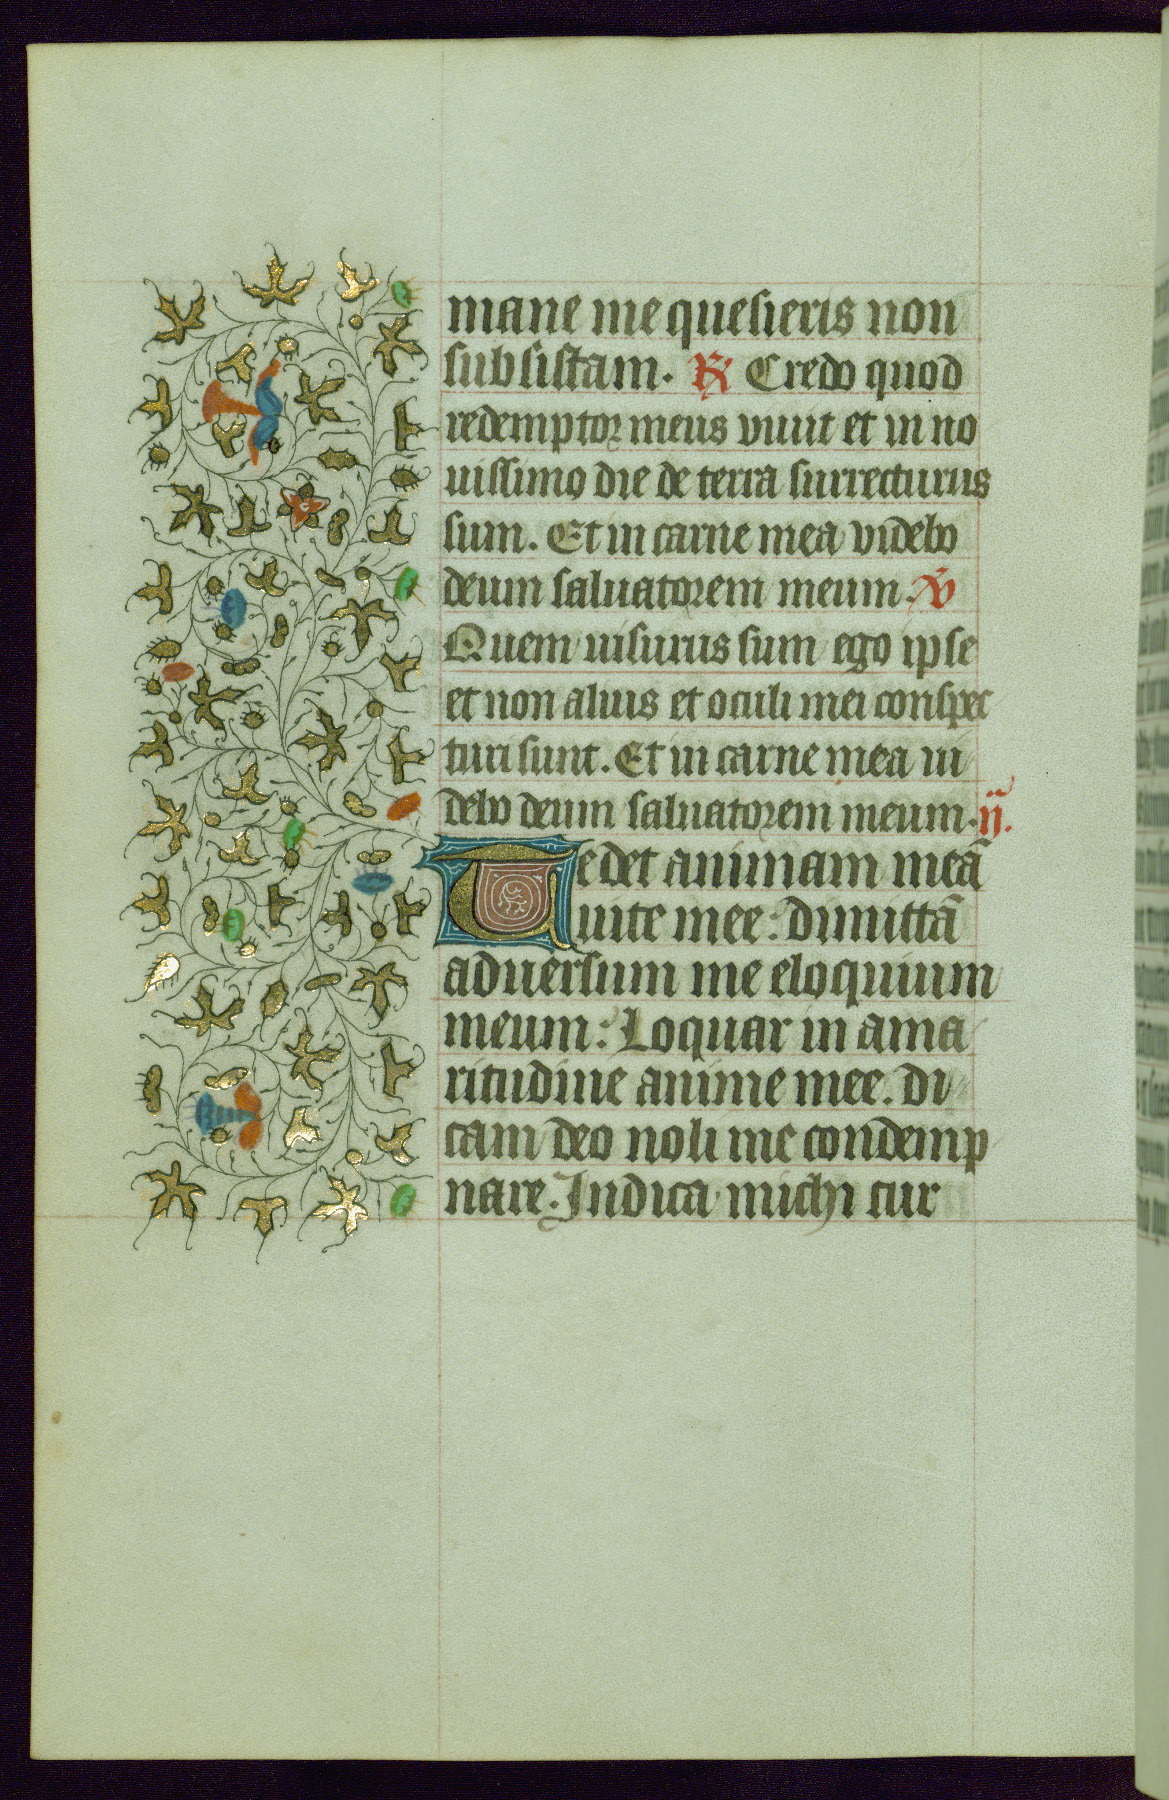 mane me quesieris non
subsistam. R Credo quod
redemptor meus viuit et in no
uissimo die de terra surrecturus
sum. Et in carne mea videbo
deum saluatorem meum. V
Quem uisurus sum ego ipse
et non alius et oculi mei conspec
turi sunt. Et in carne mea ui
debo deum saluatorem meum. ij.
Tedet animam meā
uite mee: dimittā
aduersum me eloquium
meum: Loquar in ama
ritudine anime mee. di
cam deo noli me condemp
nare. Indica michi cur